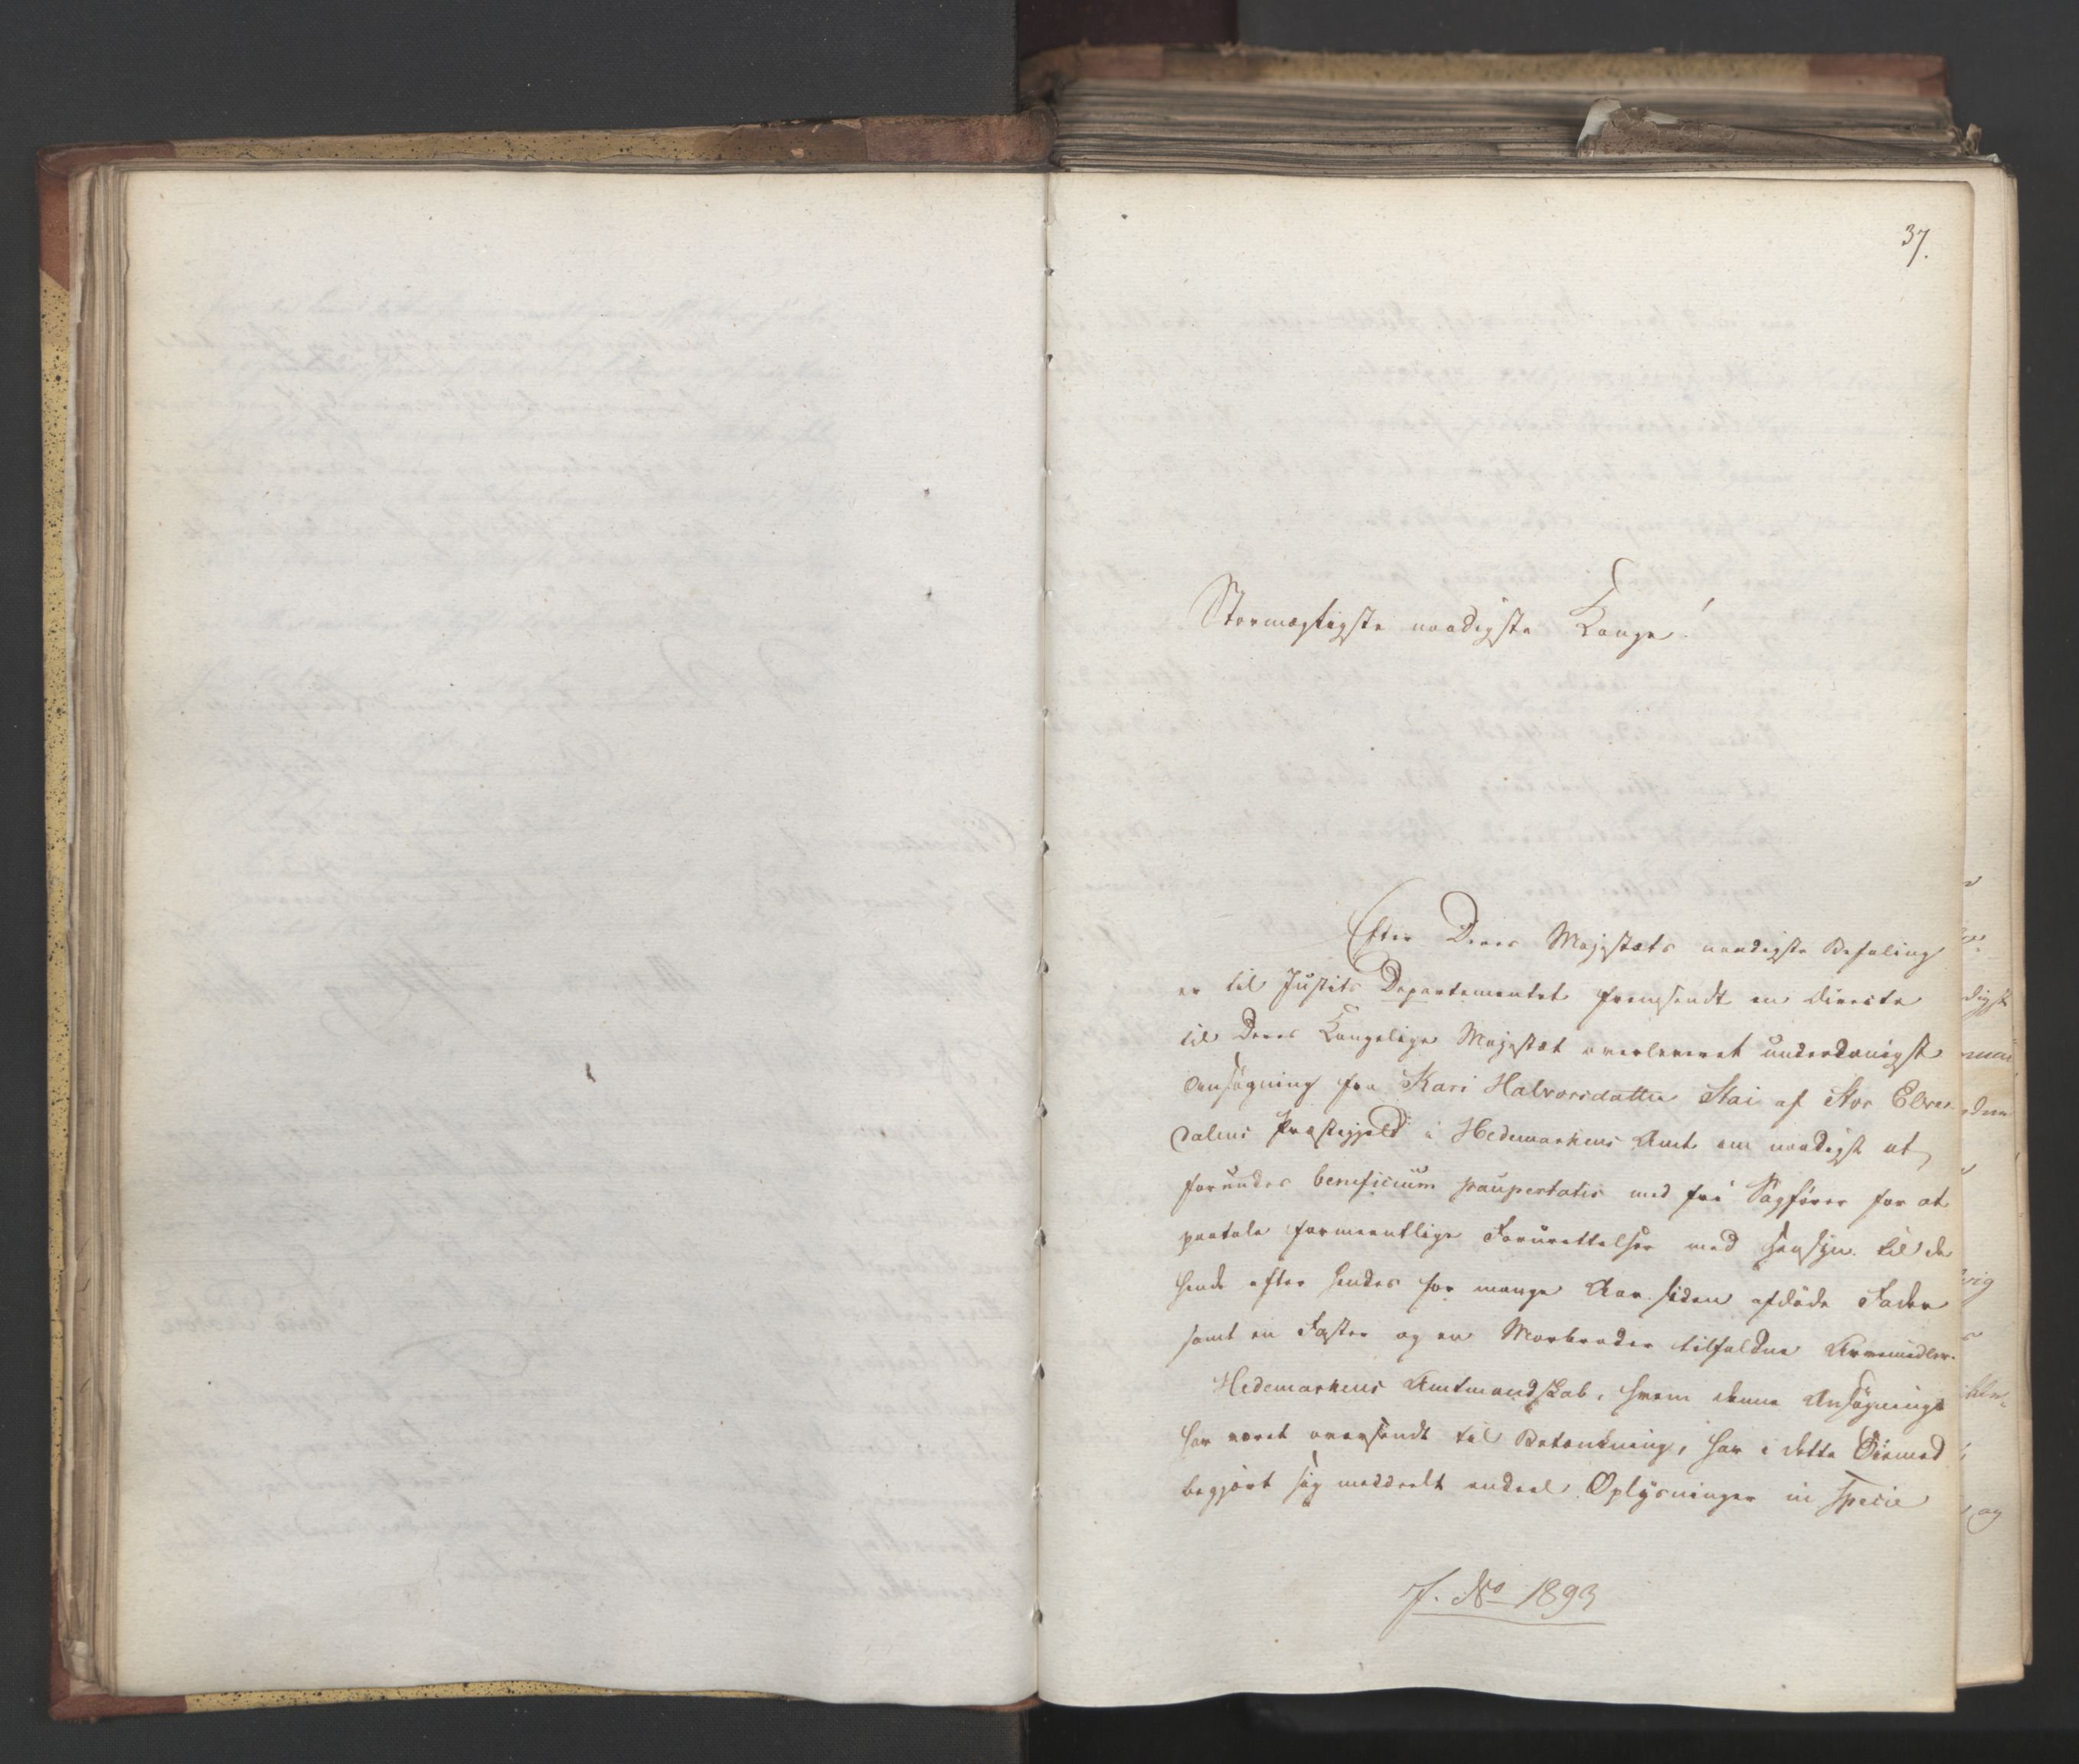 37.
Stormægtigste naadigste Konge!
Efter Deres Majestæts naadigste Befaling
er til Justits Departementet fremsendt en directe
til Deres Kongelige Majestæt overleveret underdanigst
Ansøgning fra Kari Halvorsdatter Stai af Stor Elve-
dalens Præstegjeld i Hedemarkens Amt om naadigst at
forundes beneficium paupertatis med fri Sagfører for at
paatale formeentlige Forurettelser med Hensyn til de
hende efter hendes for mange Aar siden afdøde Fader
samt en Faster og en Morbroder tilfaldne Arvemidler.
Hedemarkens Amtmandskab, hvem denne Ansøgning
har været oversendt til Betænkning, har i dette Øiemed
begjært sig meddeelt endeel Oplysninger in specie
J. No 1893